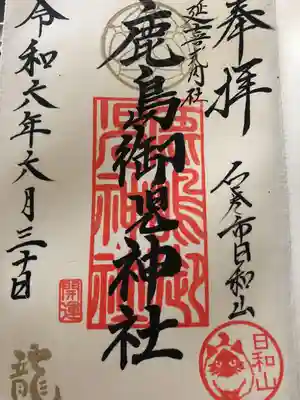 奉拝
延喜式内社
石巻市日和山
鹿島御児神社
鹿島御児神社
令和六年六月三十日
開運
日和山
龍